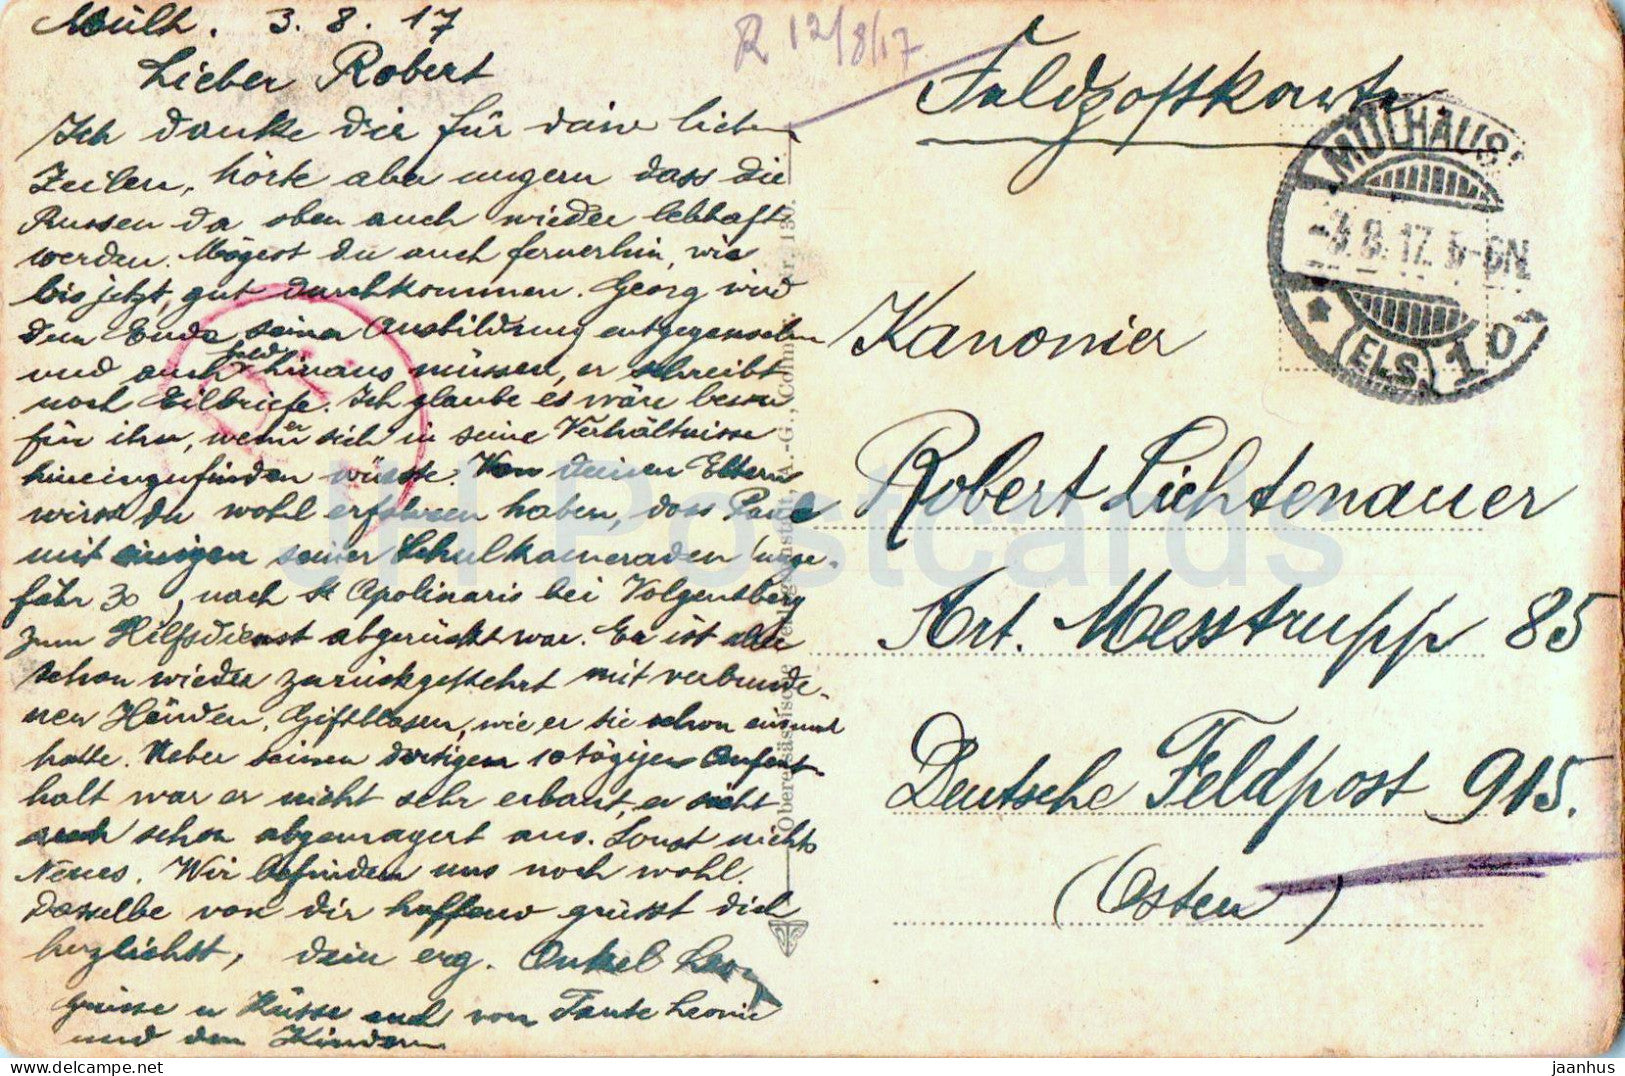 Mülh. 3. 8. 17
Lieber Robert
Ich danke dir für deine lieben
Zeilen, hörte aber ungern dass die
Russen da oben auch wieder lebhaft
werden. Mögest du auch fernerhin, wie
bis jetzt, gut durchkommen. Georg wird
dem Ende seiner Ausbildung entgegensehen
und auch bald hinaus müssen, er schreibt
noch Eilbriefe. Ich glaube es wäre besser
für ihn, wenn er sich in seine Verhältnisse
hineinzufinden wüsste. Von deinen Eltern
wirst du wohl erfahren haben, dass Paul
mit einigen seiner Schulkameraden (unge-
fähr 30), nach St Apolinaris bei Volgensberg
zum Hilfsdienst abgerückt war. Er ist aber
schon wieder zurückgekehrt mit verbunde-
nen Händen, Giftblasen, wie er sie schon einmal
hatte. Ueber seinen dortigen 10 tägigen Aufent-
halt war er nicht sehr erbaut, er sieht
auch schon abgemagert aus. Sonst nichts
Neues. Wir befinden uns noch wohl.
Dasselbe von dir hoffend grüsst dich
herzlichst, dein erg. Onkel
Grüsse u Küsse auch von Tante Leonie
und den Kindern
R 12/8/17
Feldpostkarte
MÜLHAUS
-3.8.17. 5-6N
(ELS.) 1
Kanonier
Robert Lichtenauer
Art. Messtrupp 85
Deutsche Feldpost 915.
(Osten)
Oberelsässische Verlagsanstalt, A.-G., Colmar. Nr. 130.
JH Postcards
jaanhus
www.delcampe.net